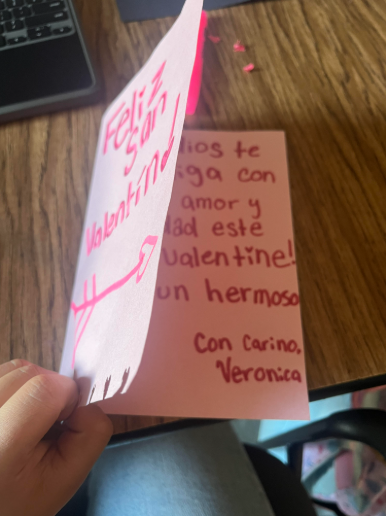 Feliz
San
Valentín!
te
con
amor y
este
valentine!
un hermoso
Con Carino,
Veronica